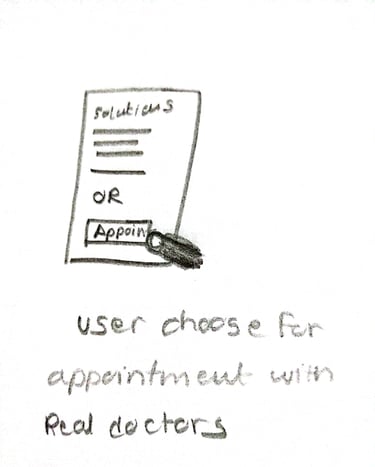 Solutions
OR
Appoint
user choose for
appointment with
Real doctors